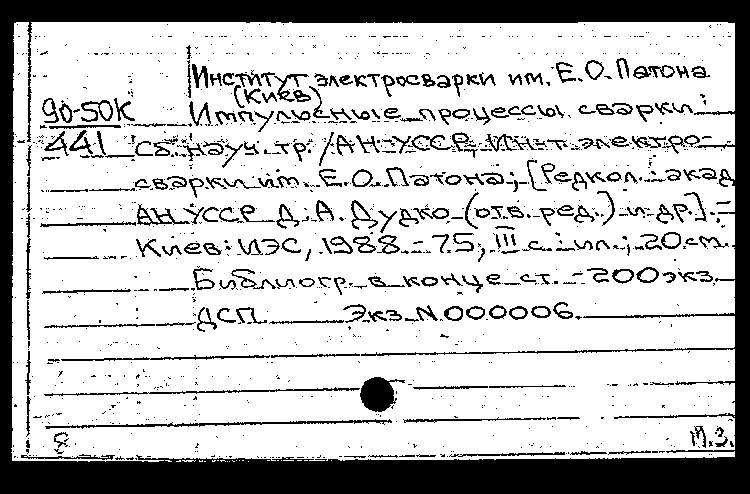 Институт электросварки им. Е.О. Патона
(Киев)
90-50К Импульсные процессы сварки:
441 Сб. науч. тр. / АН УССР, Ин-т электро-
сварки им. Е.О. Патона; [Редкол.: акад.
АН УССР Д.А. Дудко (отв. ред.) и др.].-
Киев: ИЭС, 1988.-75, III с.: ил.; 20 см.
Библиогр. в конце ст. - 200 экз.
ДСП Экз. N 000006.
8 М.З.